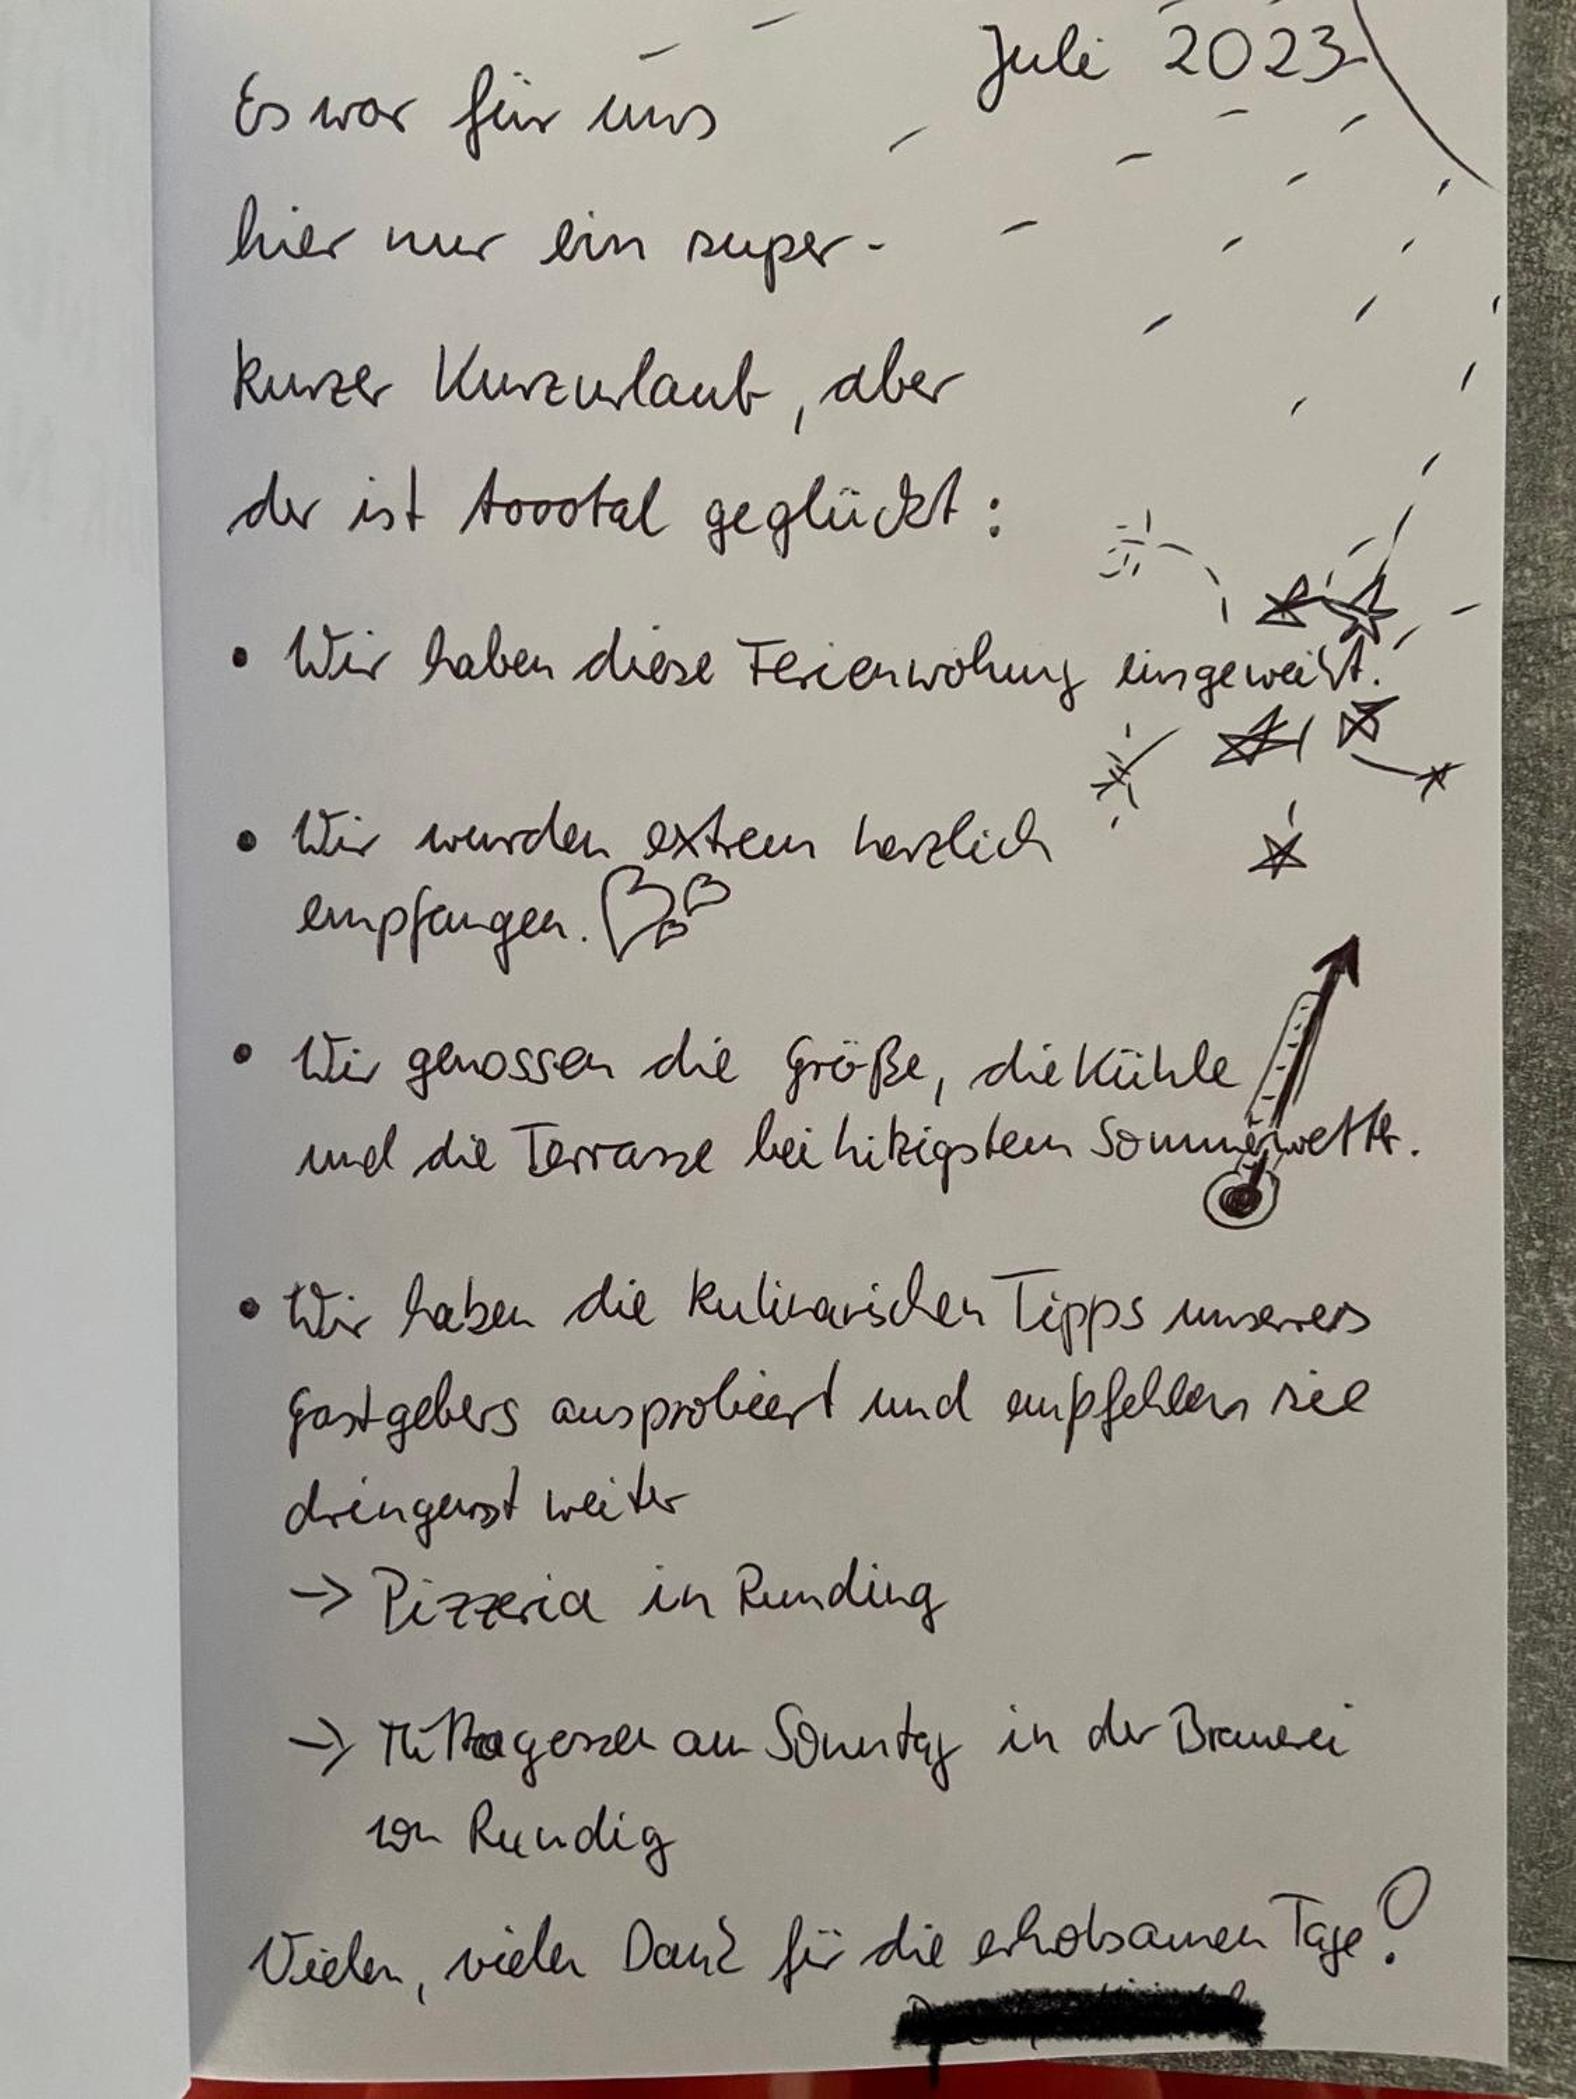 Juli 2023
Es war für uns
hier nur ein super-
kurzer Kurzurlaub, aber
der ist toootal geglückt:
• Wir haben diese Ferienwohung eingeweiht.
• Wir wurden extrem herzlich
empfangen.
• Wir genossen die Größe, die Kühle
und die Terrasse bei hitzigstem Sommerwetter.
• Wir haben die kulinarischen Tipps unseres
Gastgebers ausprobiert und empfehlen sie
dringenst weiter
→ Pizzeria in Runding
→ Mittagessen am Sonntag in der Brauerei
von Rundig
Vielen, vielen Dank für die erholsamen Tage!